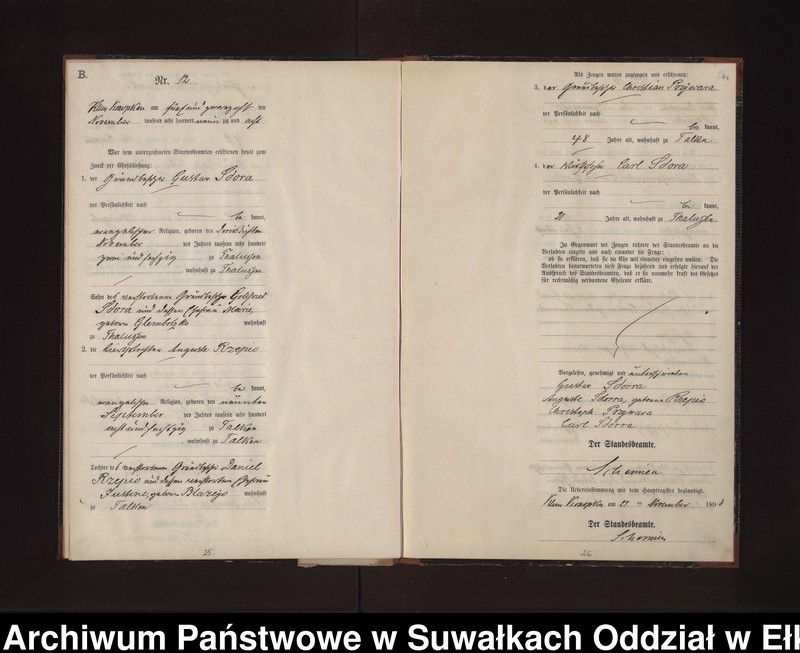 B.
Nr. 12
Klein Konopken am fünfundzwanzigsten ten
November tausend acht hundert neunzig und acht
Vor dem unterzeichneten Standesbeamten erschienen heute zum
Zweck der Eheschließung:
1. der Grundbesitzer Gustav Sdorra
der Persönlichkeit nach
be kannt,
evangelischer Religion, geboren den dreißigsten
November des Jahres tausend acht hundert
zwei und sechzig zu Thalussen
, wohnhaft zu Thalussen
Sohn des verstorbenen Grundbesitzer Gottfried
Sdora und dessen Ehefrau Marie,
geboren Glembotzko wohnhaft
zu Thalussen
2. die Wirthstochter Auguste Rzepio
der Persönlichkeit nach
be kannt,
evangelischer Religion, geboren den neunten
September des Jahres tausend acht hundert
acht und sechzig zu Talken
, wohnhaft zu Talken
Tochter des verstorbenen Grundbesitzer Daniel
Rzepio und dessen verstorbenen Ehefrau
Justine, geboren Blazejo wohnhaft
zu Talken
25
Als Zeugen waren zugezogen und erschienen:
3. der Grundbesitzer Christian
der Persönlichkeit nach
be kannt,
48 Jahre alt, wohnhaft zu Talken
4. der Carl Sdora
der Persönlichkeit nach
be kannt,
21 Jahre alt, wohnhaft zu Thalussen
In Gegenwart der Zeugen richtete der Standesbeamte an die
Verlobten einzeln und nach einander die Frage:
ob sie erklären, daß sie die Ehe mit einander eingehen wollen. Die
Verlobten beantworteten diese Frage bejahend und erfolgte hierauf der
Ausspruch des Standesbeamten, daß er sie nunmehr kraft des Gesetzes
für rechtmäßig verbundene Eheleute erkläre.
Vorgelesen, genehmigt und unterschrieben
Gustav Sdorra
Auguste Sdorra, geborene Rzepio
Christoph
Carl Sdorra
Der Standesbeamte.
Die Uebereinstimmung mit dem Hauptregister beglaubigt.
Klein Konopken am 25 ten November 1898
Der Standesbeamte.
26
Archiwum Państwowe w Suwałkach Oddział w Ełk